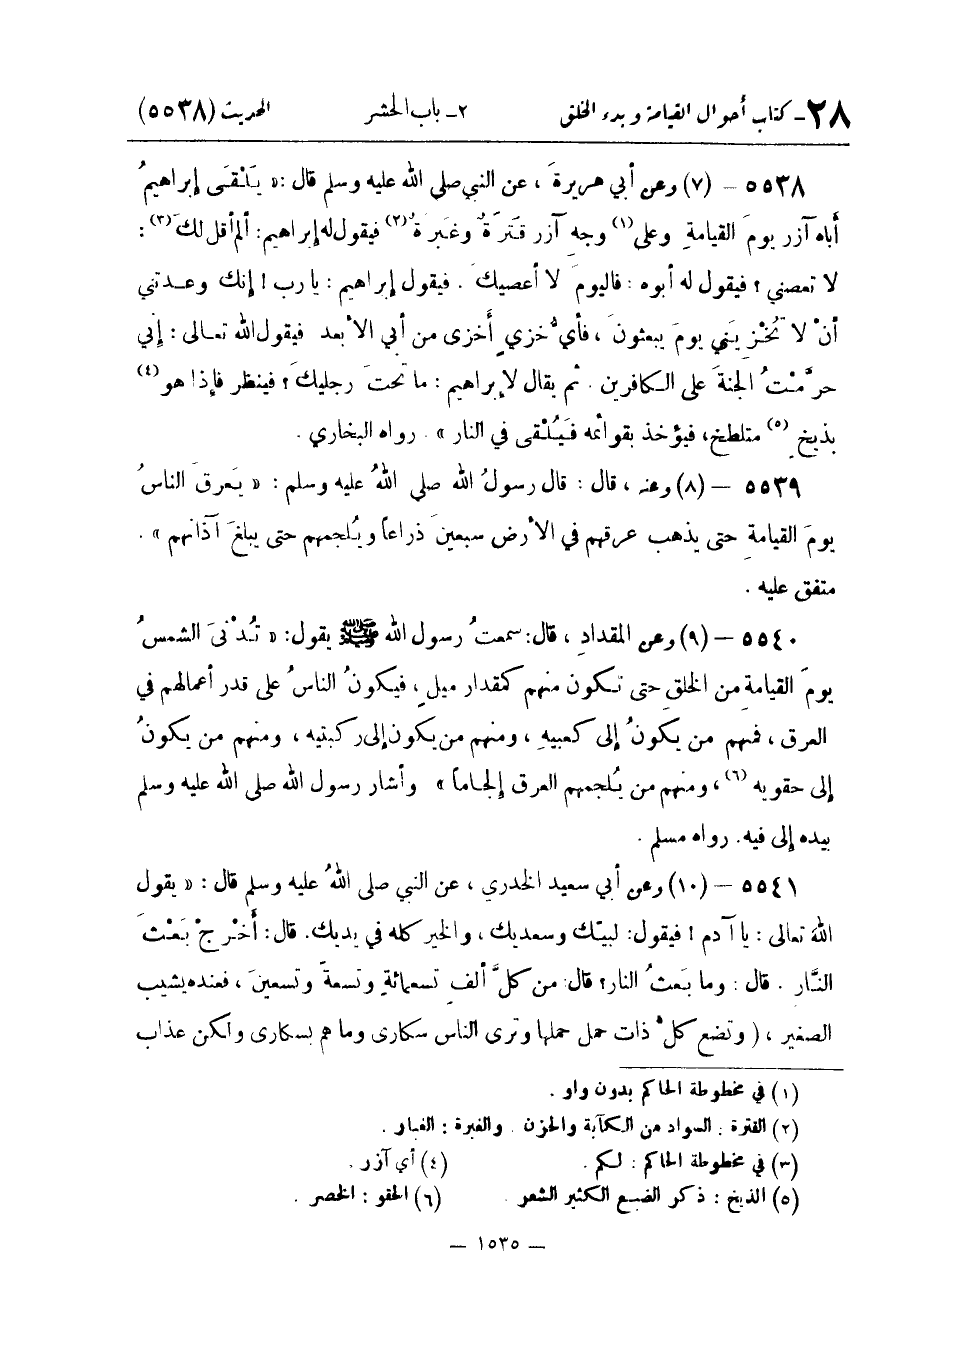 ٢٨- كتاب أحوال القيامة وبدء الخلق ٢- باب الحشر الحديث (٥٥٣٨)
٥٥٣٨ - (٧) وعن أبي هريرةَ، عن النبي صلى الله عليه وسلم قال: « يَلْقَى إبراهيمُ
أباه آزر يومَ القيامةِ وعلى(١) وجهِ آزر قَتَرَةٌ وغَبَرَةٌ(٢) فيقول له إبراهيم: ألم أقل لكَ(٣):
لا تعصني؟ فيقول له أبوه: فاليومَ لا أعصيكَ. فيقول إبراهيم: يا رب! إنك وعدتني
أنْ لا تُخْزِيَني يومَ يبعثونَ، فأيُّ خزيٍ أَخزى من أبي الأبعد فيقول الله تعالى: إني
حرَّمْتُ الجنةَ على الكافرين. ثم يقال لإبراهيم: ما تحتَ رجليكَ؟ فينظر فإذا هو(٤)
بذيخٍ(٥) متلطخ، فيؤخذ بقوائمه فَيُلْقى في النار ». رواه البخاري.
٥٥٣٩ - (٨) وعنه، قال: قال رسولُ الله صلى اللهُ عليه وسلم: « يَعرقَ الناسُ
يومَ القيامةِ حتى يذهب عرقهم في الأرض سبعينَ ذراعاً ويُلجمهم حتى يبلغَ آذانهم ».
متفق عليه.
٥٥٤٠ - (٩) وعن المقدادِ، قال: سمعتُ رسول الله ﷺ يقول: « تُدْنىَ الشمسُ
يومَ القيامةِ من الخلقِ حتى تكون منهم كمقدار ميلٍ، فيكونُ الناسُ على قدر أعمالهم في
العرق، فمنهم من يكونُ إلى كعبيهِ، ومنهم من يكون إلى ركبتيه، ومنهم من يكونُ
إلى حقويه(٦)، ومنهم من يُلجمهم العرق إلجاماً » وأشار رسول الله صلى الله عليه وسلم
بيده إلى فيه. رواه مسلم.
٥٥٤١ - (١٠) وعن أبي سعيد الخدري، عن النبي صلى اللهُ عليه وسلم قال: « يقول
اللهُ تعالى: يا آدم! فيقول: لبيّك وسعديك، والخير كله في يديك. قال: أَخْرِجْ بَعْثَ
النَّار. قال: وما بَعثُ النار؟ قال: من كلَّ ألفٍ تسعمائةٍ وتسعةً وتسعينَ، فعنده يشيب
الصغير، ( وتضع كلُّ ذات حمل حملها وترى الناس سكارى وما هم بسكارى ولكن عذاب
(١) في مخطوطة الحاكم بدون واو.
(٢) القترة: السواد من الكآبة والحزن. والغبرة: الغبار.
(٣) في مخطوطة الحاكم: لكم. (٤) أي آزر.
(٥) الذيخ: ذكر الضبع الكثير الشعر. (٦) الحقو: الخصر.
- ١٥٣٥ -